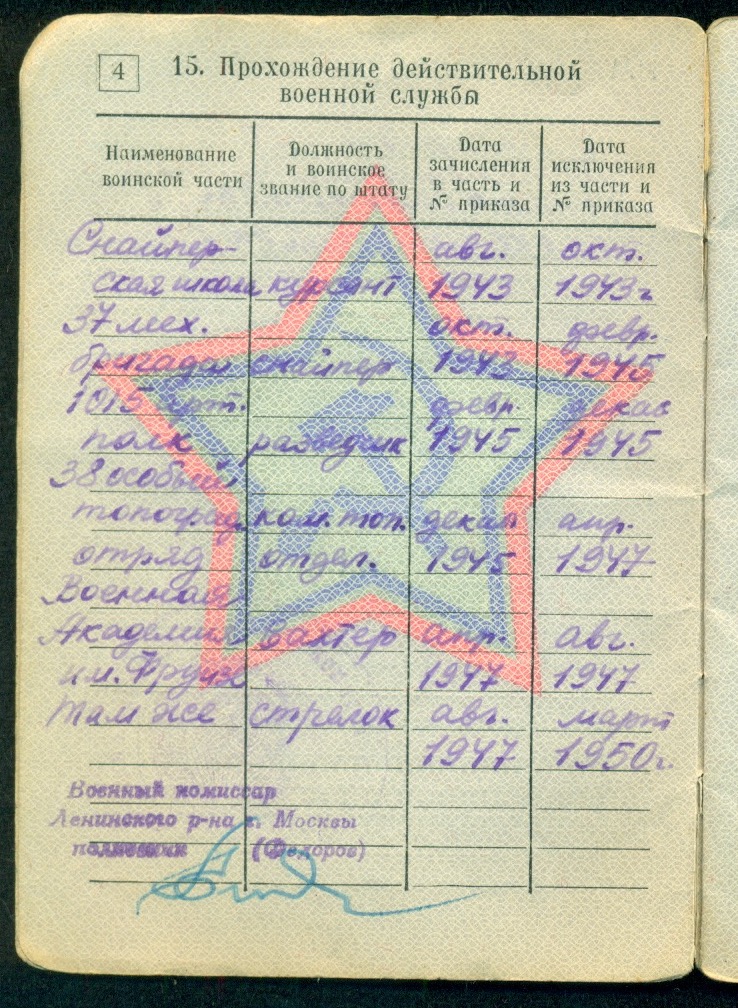 4
15. Прохождение действительной
военной службы
Наименование воинской части
Должность и воинское звание по штату
Дата зачисления в часть и № приказа
Дата исключения из части и № приказа
Снайпер- авг. окт.
ская школа курсант 1943 1943 г
37 мех. окт. февр.
бригада снайпер 1943 1945
1015 арт. февр. декаб
полк разведчик 1945 1945
38 особый
топограф. ком. топ. декаб апр.
отряд отдел. 1945 1947
Военная
Академия Вахтер апр. авг.
им. Фрунз 1947 1947
там же стрелок авг. март
1947 1950 г.
Военный комиссар
Ленинского р-на г. Москвы
полковник (Федоров)